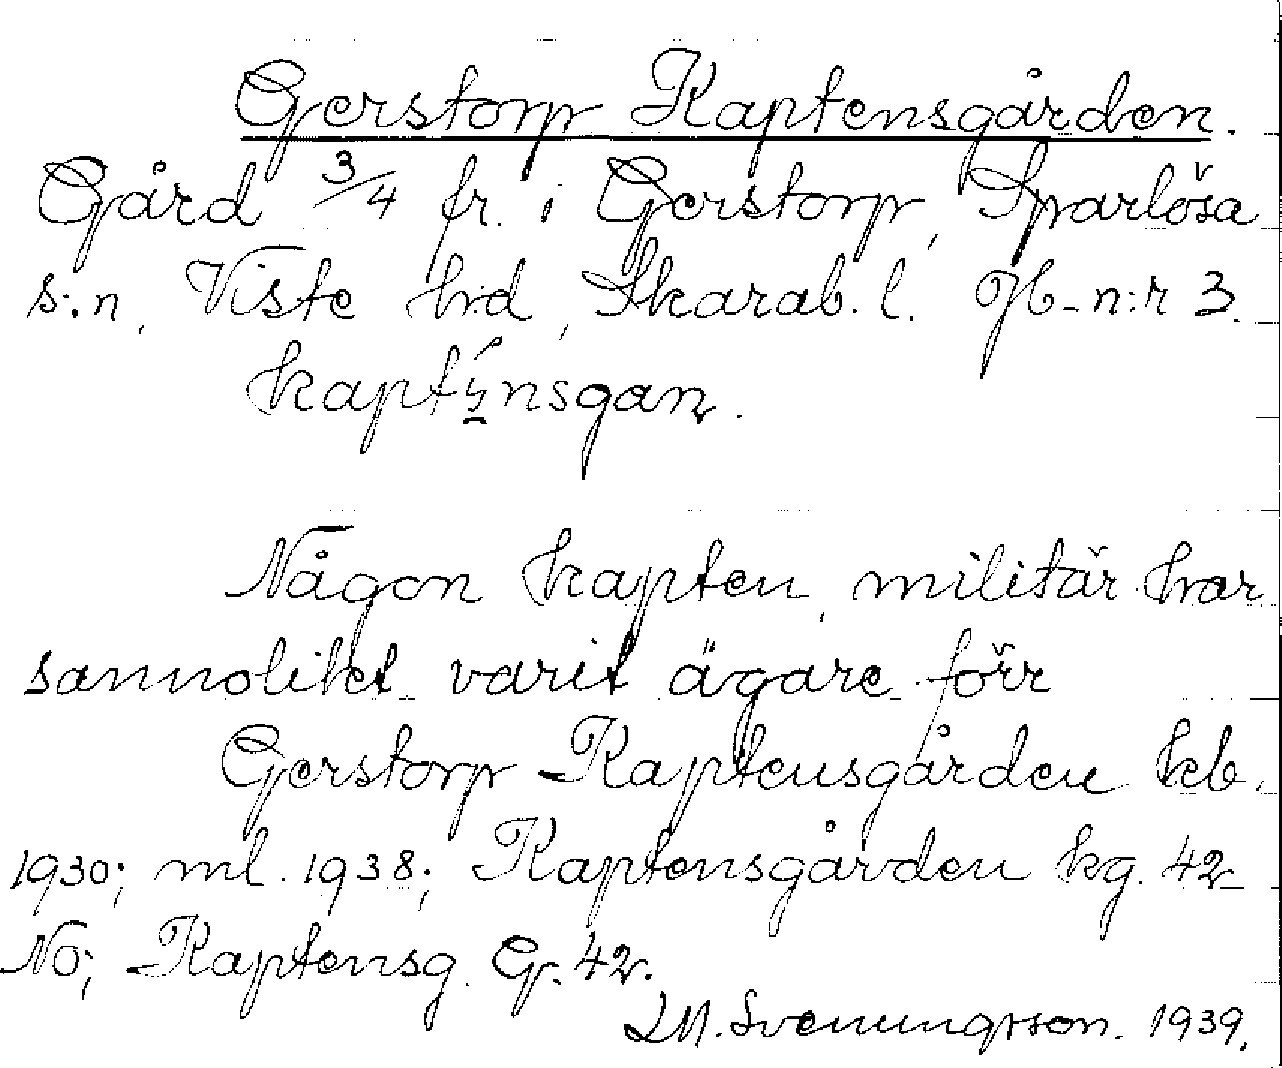 Gerstorp Kaptensgården.
Gård 3/4 fr. i Gerstorp, Sparlösa
s:n, Viste h:d, Skarab. l. Jb-n:r 3.
Någon kapten, militär har
sannolikt varit ägare förr
Gerstorp Kaptensgården kb.
1930; ml. 1938; Kaptensgården kg. 42
NO; Kaptensg. G. 42.
Svenungsson. 1939.